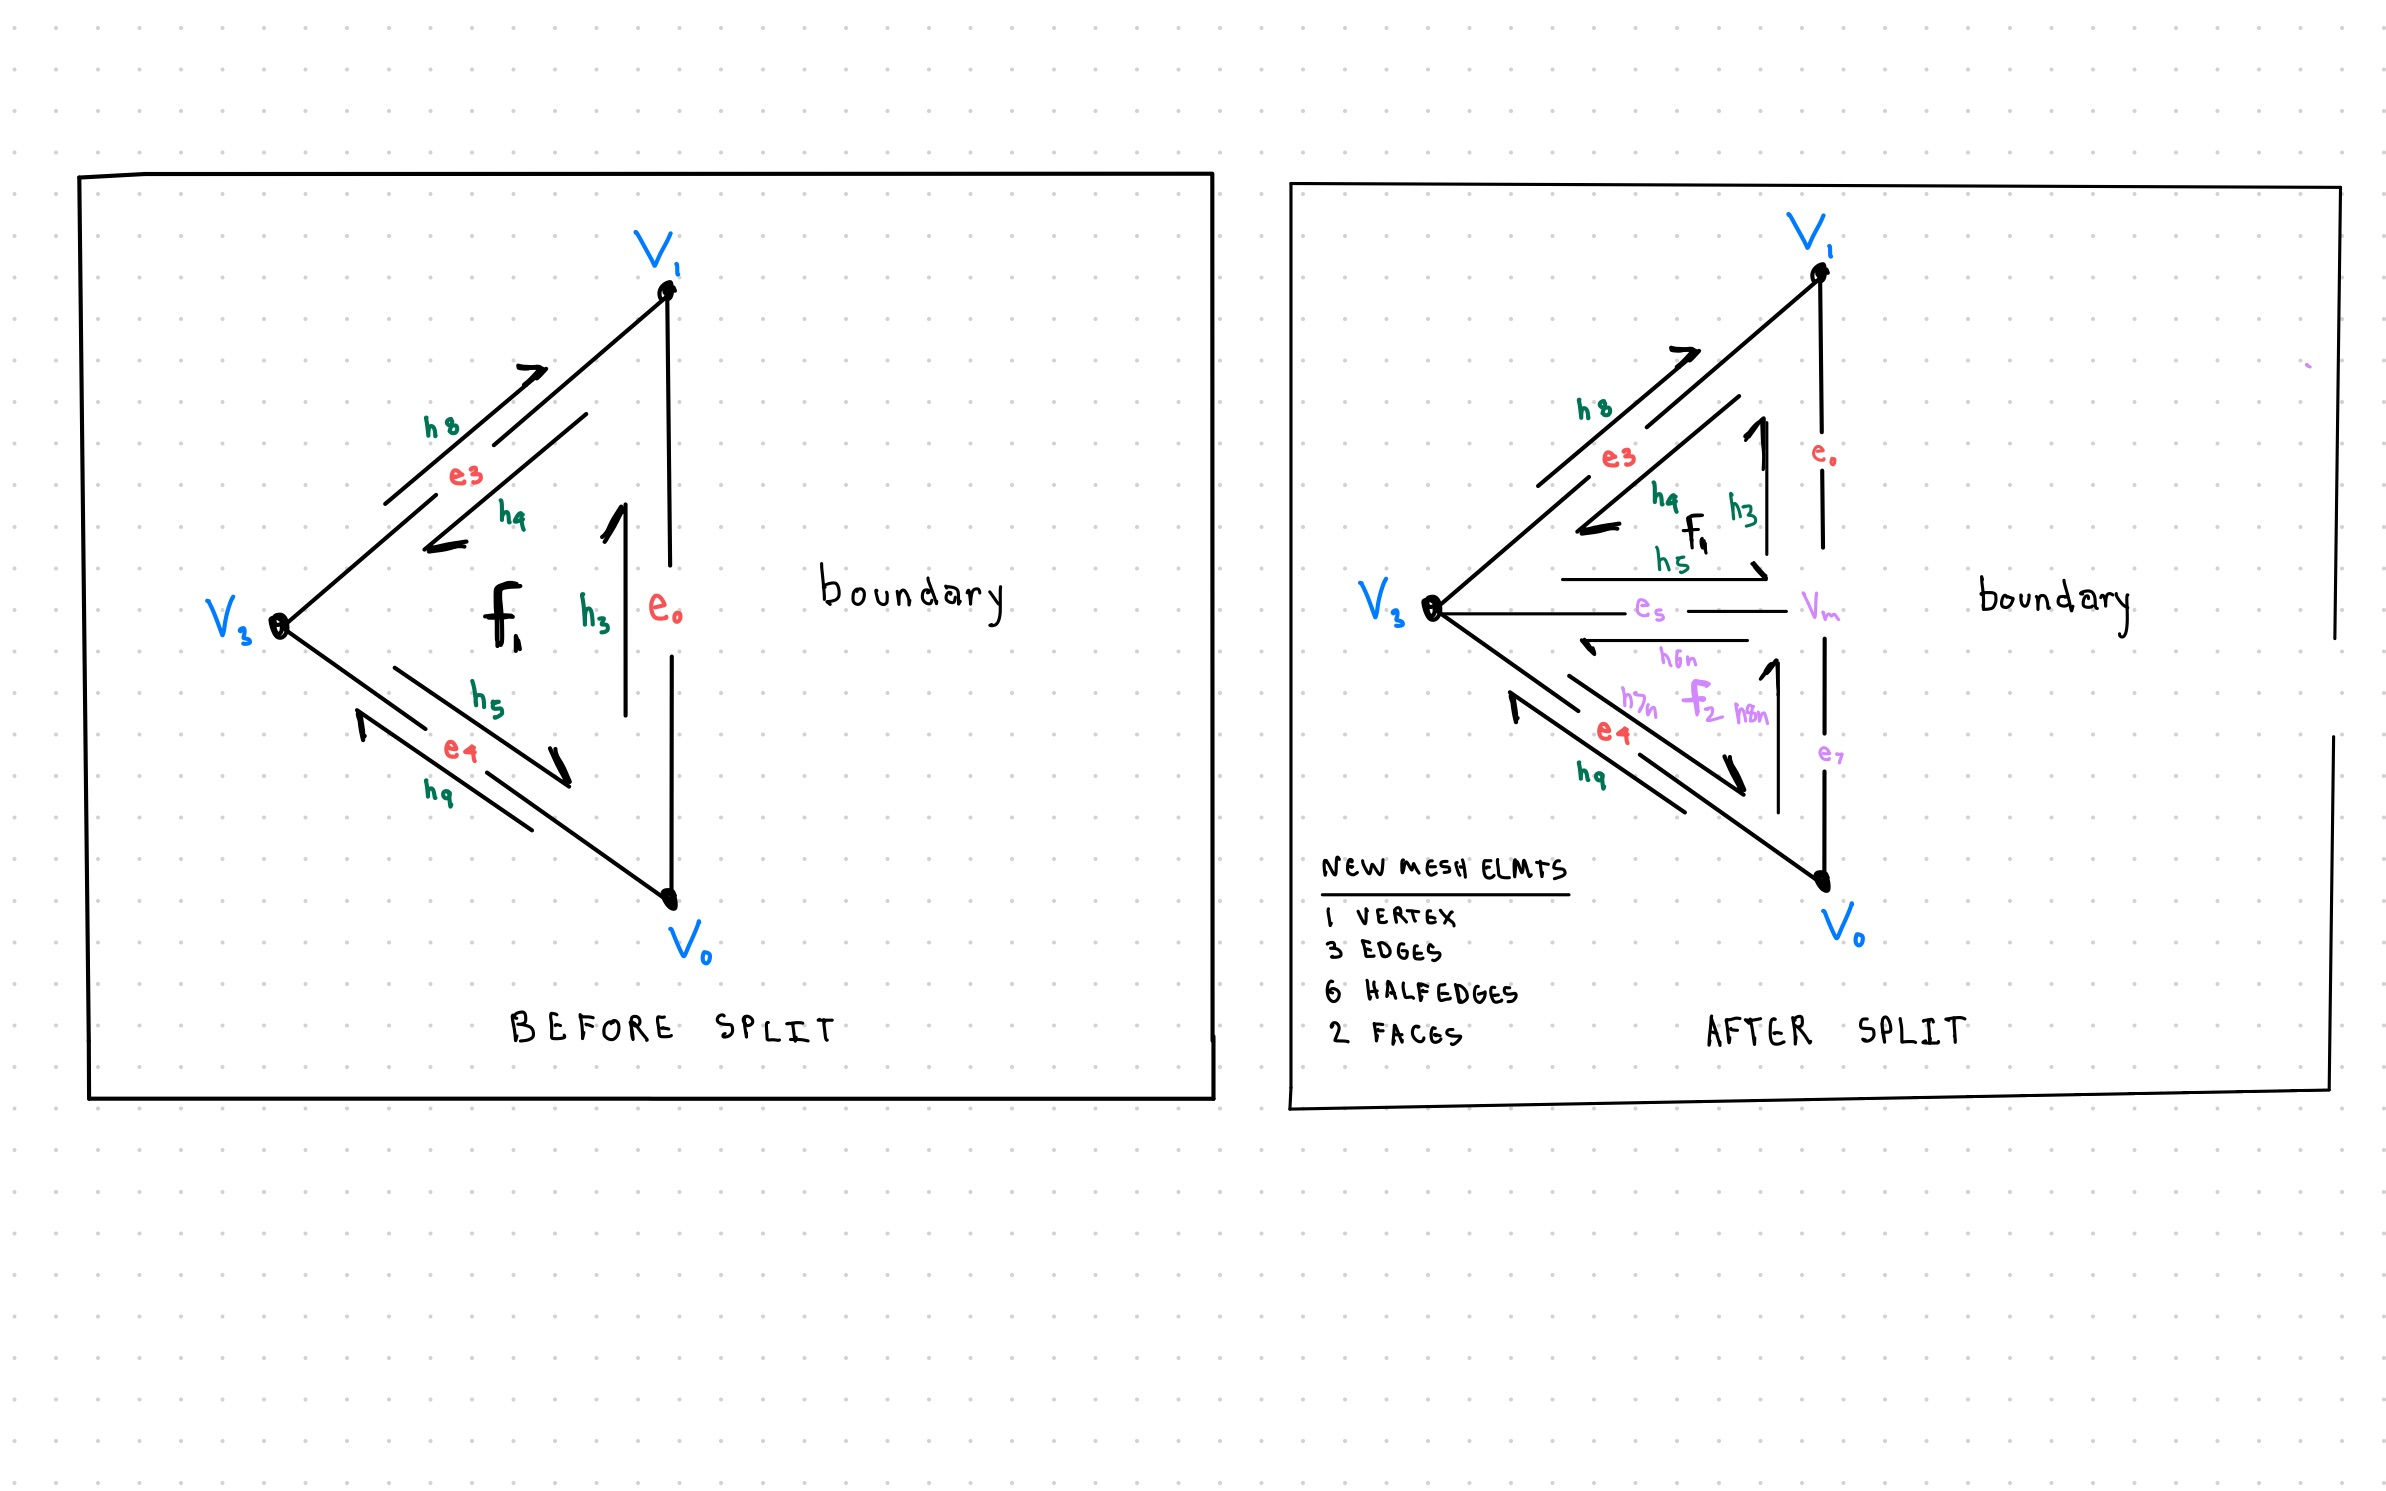 V₁
h8
e3
h4
V₃
f₁
h₃
e₀
boundary
h₅
e4
h9
V₀
BEFORE SPLIT
V₁
h8
e3
h4
h₃
e₀
f₁
h₅
V₃
e₅
Vₘ
boundary
h6n
h7n
f₂
h8n
e4
e₇
h9
NEW MESH ELMTS
1 VERTEX
3 EDGES
6 HALFEDGES
2 FACES
V₀
AFTER SPLIT